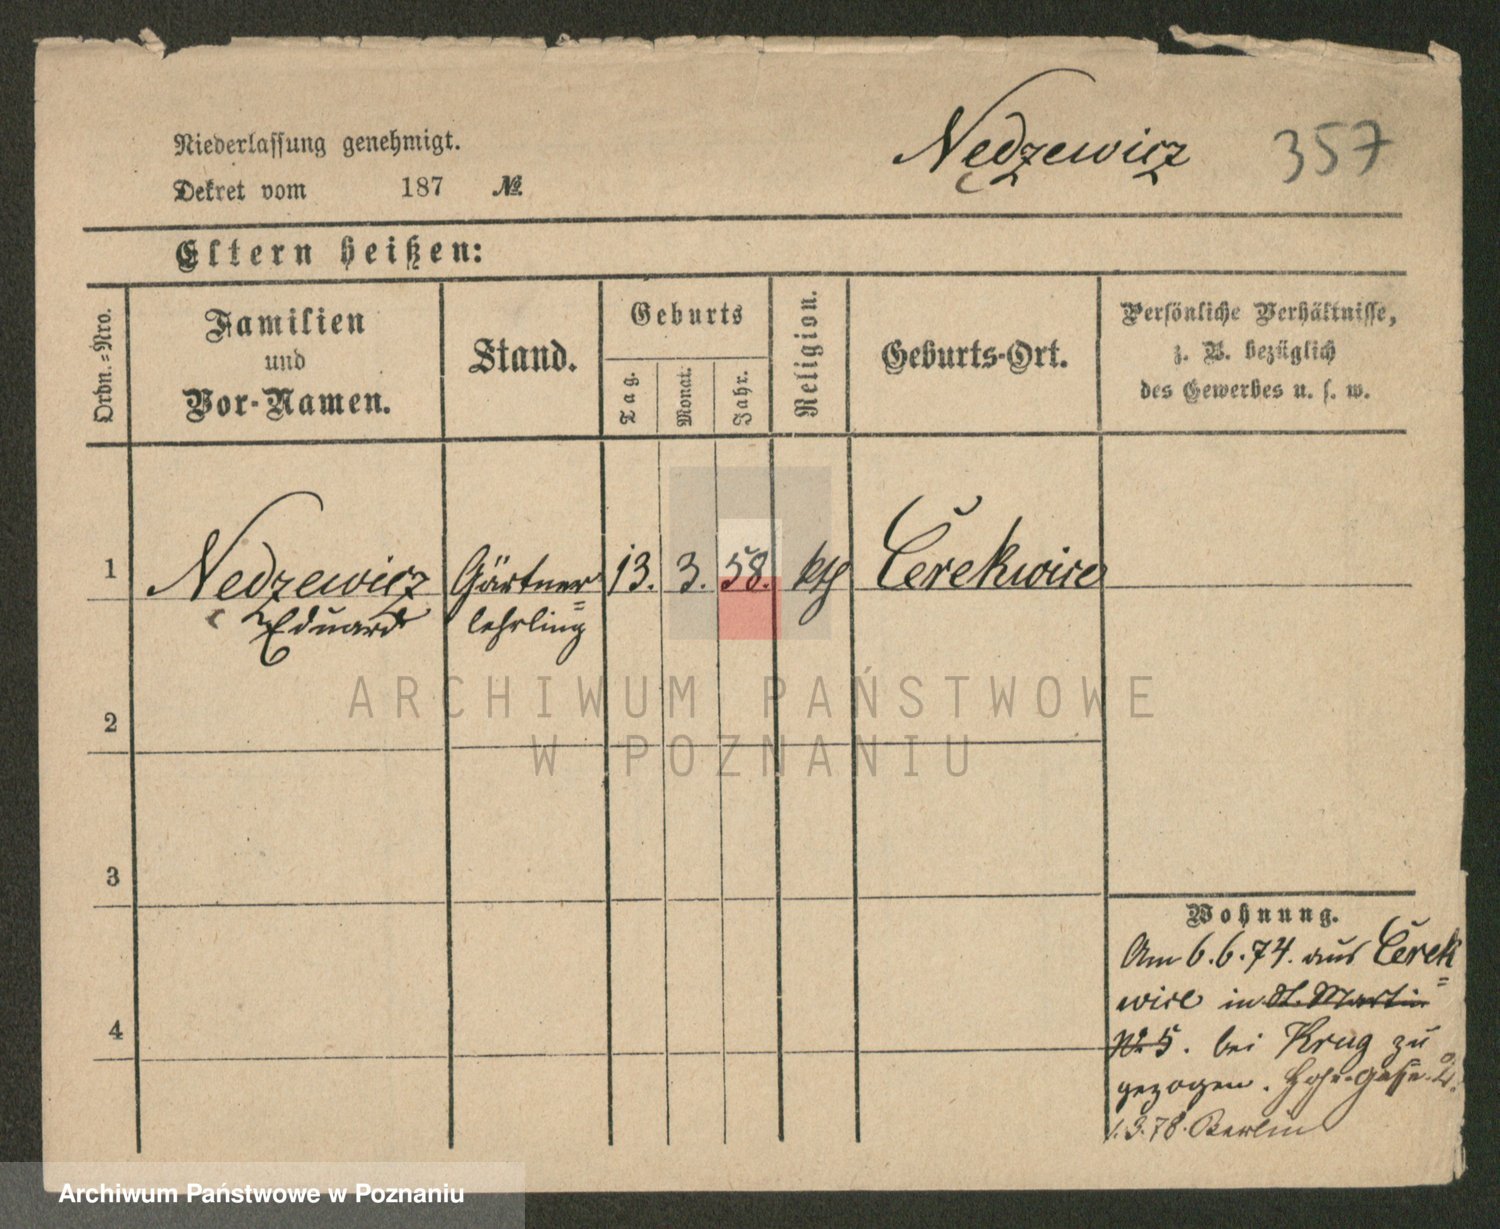 Niederlassung genehmigt.
Dekret vom 187 №
Nedzewicz 357
Eltern heißen:
Ordn.-Nro.
Familien
und
Vor-Namen.
Stand.
Geburts
Tag.
Monat.
Jahr.
Religion.
Geburts-Ort.
Persönliche Verhältnisse,
z. B. bezüglich
des Gewerbes u. s. w.
1 Nedzewicz Gärtner= 13. 3. 58. kth Cerekwice
Eduard lehrling
2
3
4
Wohnung.
Am 6.6.74. aus Cerek=
wice in St. Martin
№ 5. bei Krug zu
gezogen. Hohe-Gasse 2.
1.3.78. Berlin
ARCHIWUM PAŃSTWOWE
W POZNANIU
Archiwum Państwowe w Poznaniu